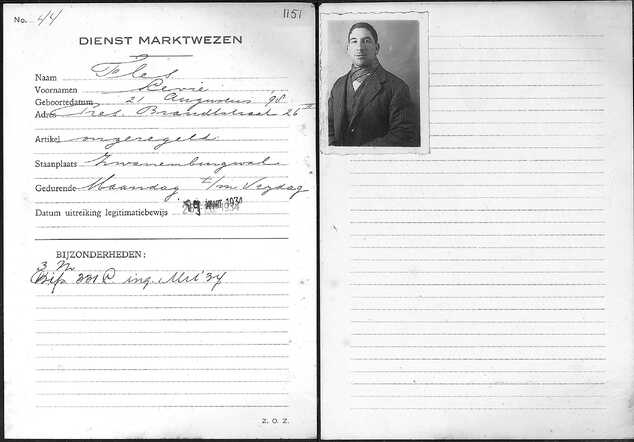 No. 44
1151
DIENST MARKTWEZEN
Naam Fles
Voornamen Levie
Geboortedatum 21 Augustus '98
Adres Pres. Brandtstraat 26 II
Artikel ongeregeld
Staanplaats Zwanenburgwal
Gedurende Maandag t/m Vrijdag
Datum uitreiking legitimatiebewijs 1934
BIJZONDERHEDEN:
3 M
331 C ing. Mrt '34
Z. O. Z.